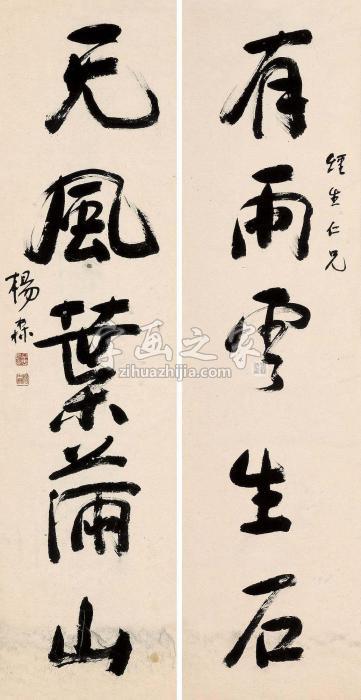 生仁兄
有雨雲生石
无風葉滿山
楊森
字画之家
zihuazhijia.com